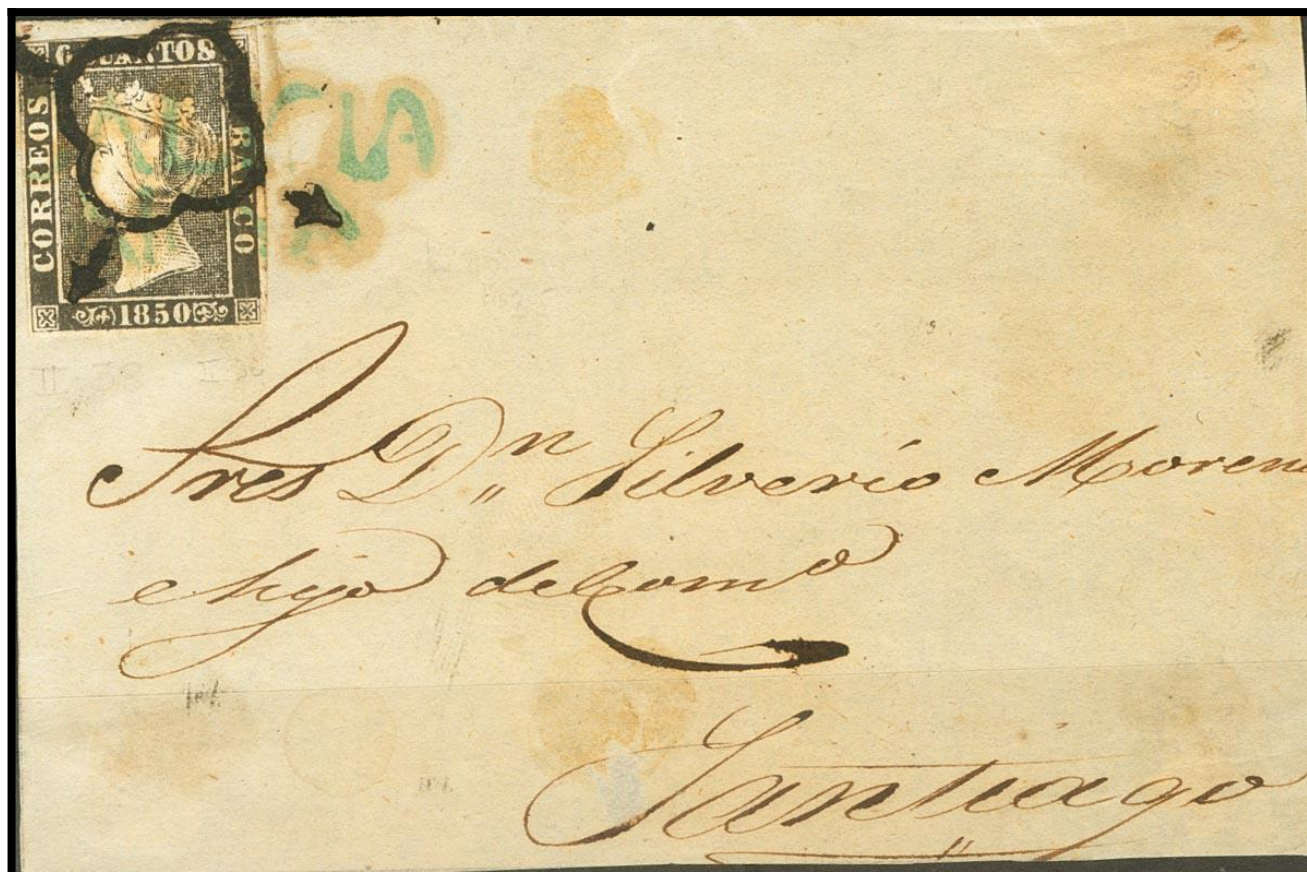 6 CUARTOS
CORREOS
1850
CIA
Sres Dn Silverio Moreno
e hijo del Como
Santiago